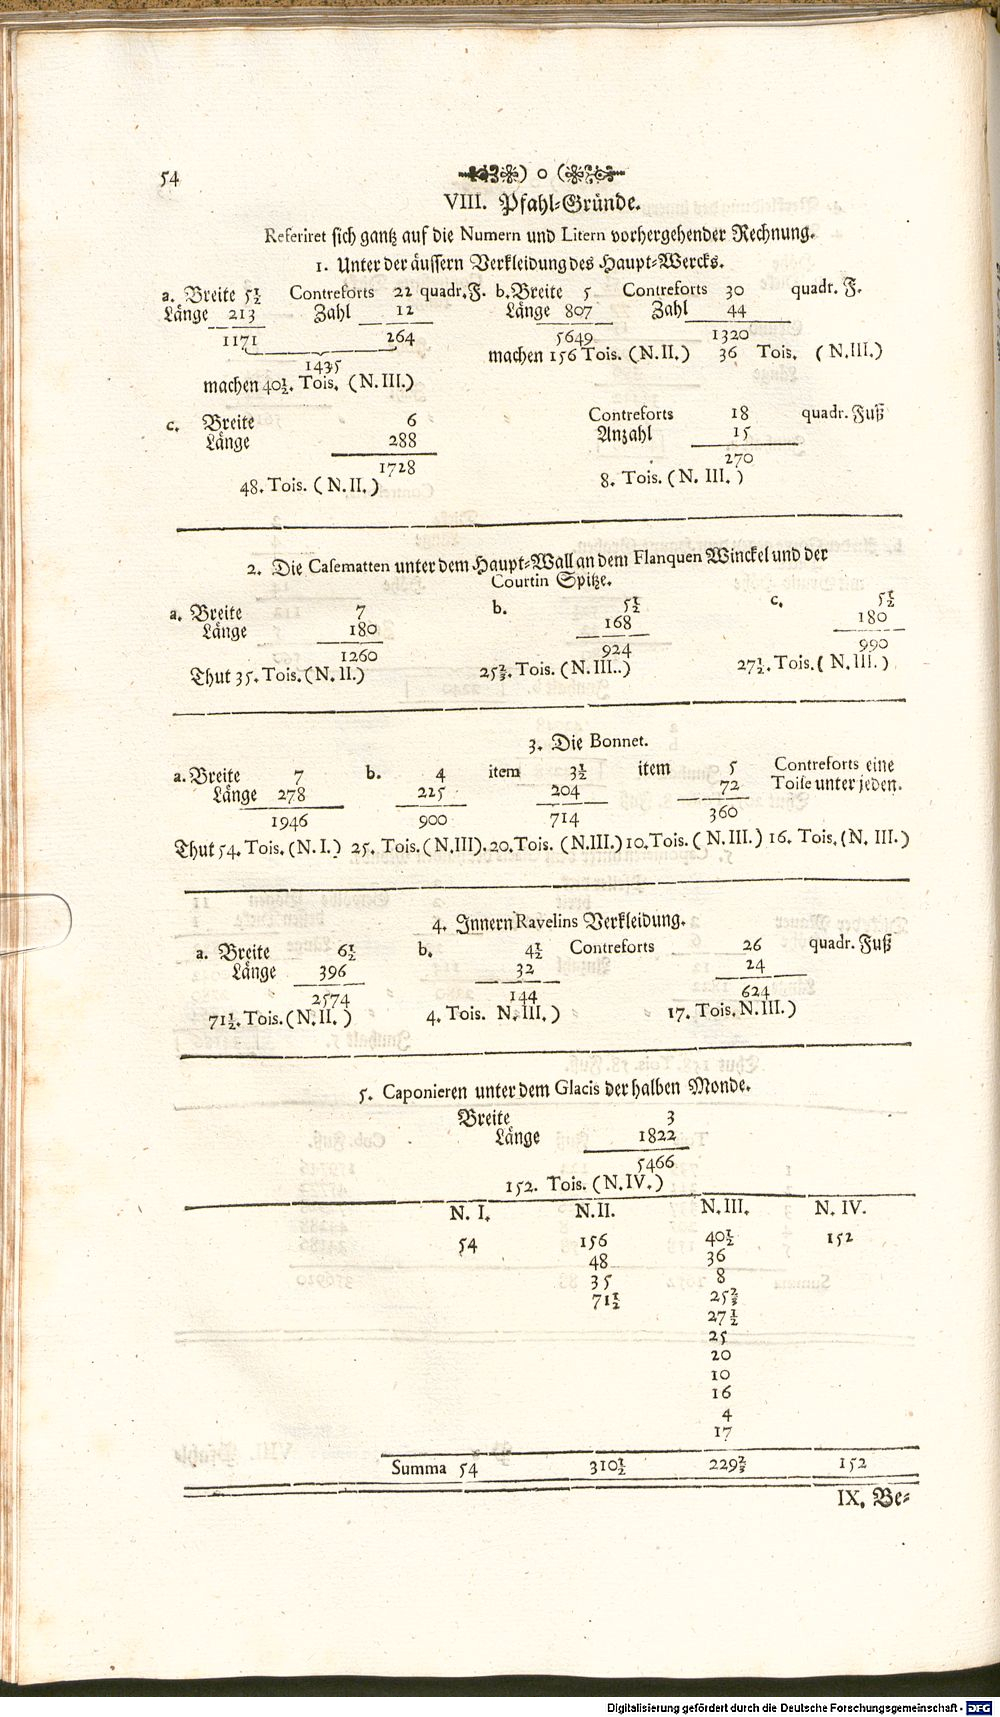 54
) o (
VIII. Pfahl-Gründe.
Referiret sich gantz auf die Numern und Litern vorhergehender Rechnung.
1. Unter der äussern Verkleidung des Haupt-Wercks.
a. Breite 5½ Contreforts 22 quadr. F. b. Breite 5 Contreforts 30 quadr. F.
Länge 213 Zahl 12 Länge 807 Zahl 44
1171 264 5649 1320
1435 machen 156 Tois. (N. II.) 36 Tois. (N. III.)
machen 40½. Tois. (N. III.)
c. Breite 6 Contreforts 18 quadr. Fuß
Länge 288 Anzahl 15
1728 270
48. Tois. (N. II.) 8. Tois. (N. III.)
2. Die Casematten unter dem Haupt-Wall an dem Flanquen Winckel und der
Courtin Spitze.
a. Breite 7 b. 5½ c. 5½
Länge 180 168 180
1260 924 990
Thut 35. Tois. (N. II.) 25⅔. Tois. (N. III..) 27½. Tois. (N. III.)
3. Die Bonnet.
a. Breite 7 b. 4 item 3½ item 5 Contreforts eine
Länge 278 225 204 72 Toise unter jeden.
1946 900 714 360
Thut 54. Tois. (N. I.) 25. Tois. (N. III). 20. Tois. (N. III.) 10. Tois. (N. III.) 16. Tois. (N. III.)
4. Innern Ravelins Verkleidung.
a. Breite 6½ b. 4½ Contreforts 26 quadr. Fuß
Länge 396 32 24
2574 144 624
71½. Tois. (N. II.) 4. Tois. N. III.) 17. Tois. N. III.)
5. Caponieren unter dem Glacis der halben Monde.
Breite 3
Länge 1822
5466
152. Tois. (N. IV.)
N. I. N. II. N. III. N. IV.
54 156 40½ 152
48 36
35 8
71½ 25⅔
27½
25
20
10
16
4
17
Summa 54 310½ 229⅔ 152
IX. Be-
Digitalisierung gefördert durch die Deutsche Forschungsgemeinschaft - DFG